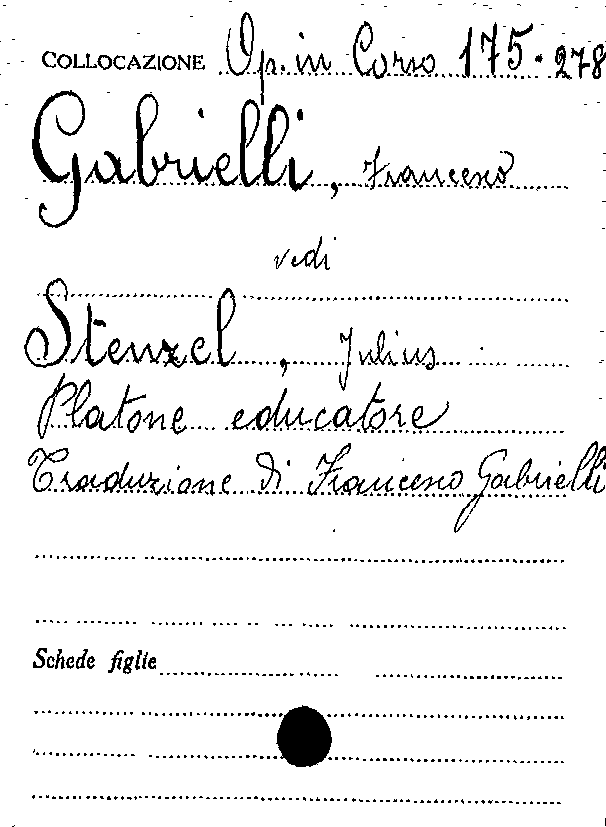 COLLOCAZIONE Op. in Corso 175.278
Gabrielli, Francesco
vedi
Stenzel, Julius
Platone educatore
Traduzione di Francesco Gabrielli
Schede figlie